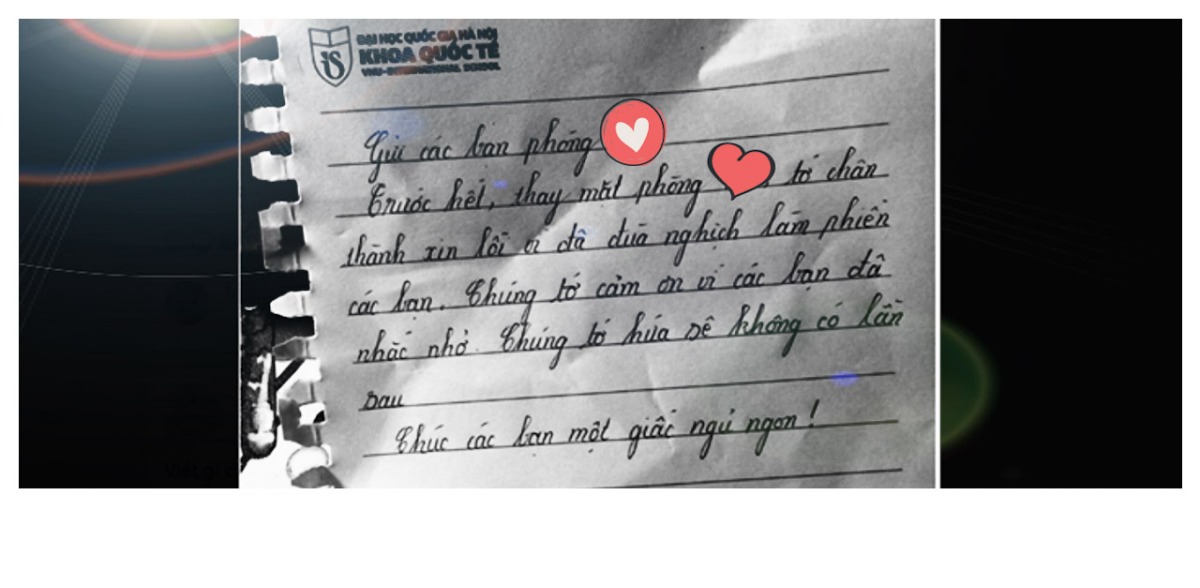 ĐẠI HỌC QUỐC GIA HÀ NỘI
KHOA QUỐC TẾ
VNU-INTERNATIONAL SCHOOL
Gửi các bạn phòng
Trước hết, thay mặt phòng tớ chân
thành xin lỗi vì đã đùa nghịch làm phiền
các bạn. Chúng tớ cảm ơn vì các bạn đã
nhắc nhở. Chúng tớ hứa sẽ không có lần
sau
Chúc các bạn một giấc ngủ ngon!